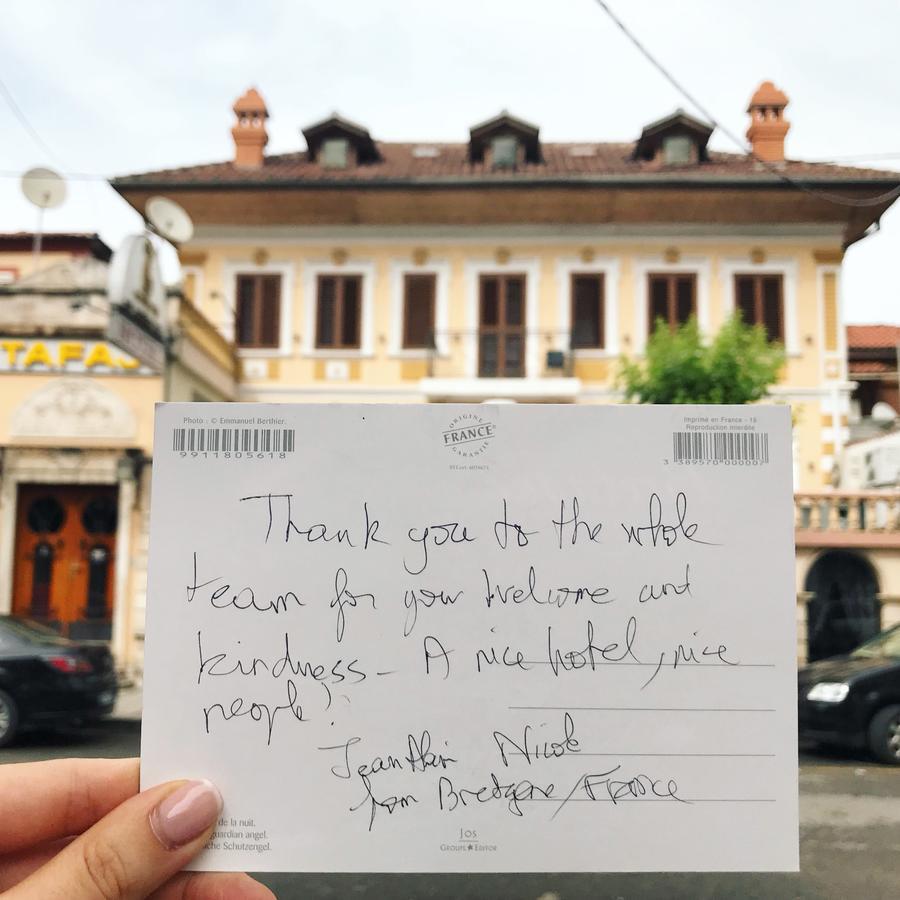 TAFAJ
Photo : © Emmanuel Berthier.
9911805618
ORIGINE
FRANCE
GARANTIE
Imprimé en France - 16
Reproduction interdite
3 389570 000007
Thank you to the whole
team for your welcome and
kindness - A nice hotel, nice
people!
Nicole
from Bretagne / France
de la nuit.
guardian angel.
che Schutzengel.
JOS
GROUPE EDITOR